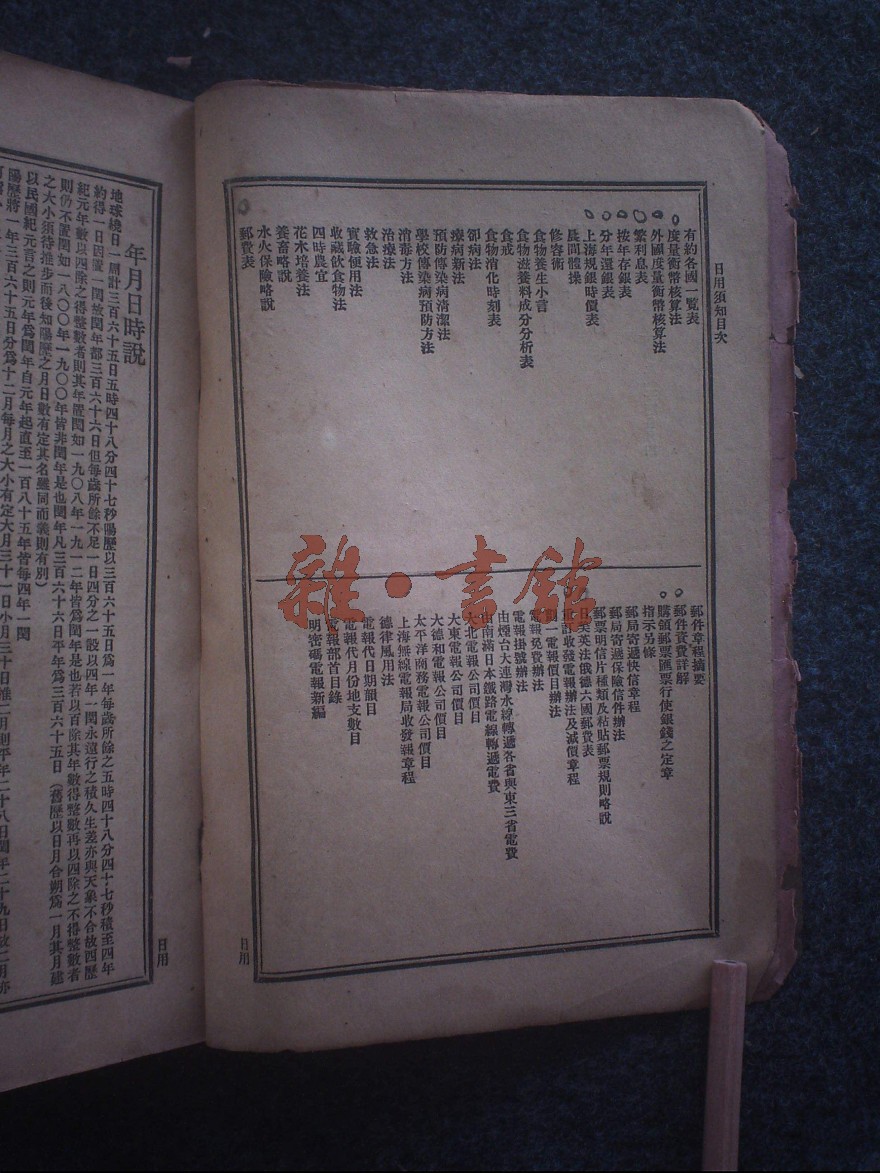 日用須知目次
有約各國一覽表
度量衡幣核算法
外國度量衡幣核算法
繁利息表
按年存銀表
分年還銀表
上海規銀時價表
晨間體操
修容術
食物養生小言
食物滋養料成分分析表
食戒
食物消化時刻表
卻病法
療病新法
預防傳染病清潔法
學校傳染病預防方法
消毒方法
治療法
救急法
實驗便用法
收藏飲食物法
四時農宜
花木培養法
養畜略說
水火保險略說
郵費表
郵件章程摘要
郵件資費詳解
購領郵票匯票行使銀錢之定章
指示另條
郵局寄遞快信章程
郵局寄遞保險信件辦法
郵票明信片種類及粘貼郵票規則略說
日美英法俄德六國郵費表
重訂收發電報辦法及減價章程
劃一電報價目辦法
電報免費辦法
電報掛號辦法
由煙台大連灣水線轉遞各省與東三省電費
由南滿日本鐵路電線轉遞電費
大北電報公司價目
大東電報公司價目
大德和電報公司價目
太平洋商務電報公司價目
上海無線電報局收發報章程
德律風用法
電報代日期韻目
電報代月份地支數目
電報部首目錄
明密碼電報新編
日用
年月日時說
地球繞日一周計三百六十五日五時四十八分四十七秒陽歷以三百六十五日為一年每歲所餘之五時四十八分四十七秒積至四年
約得一日因置一閏故閏年都三百六十六日但每歲所餘不足一日四分之一設以四年一閏永遠行之積久生差亦與天象不合故西歷
紀元年數以四除之得整數者則其年置閏如一九〇八年一九一二年皆為閏年是也若以百除其年數得整數再以四除之不得整數者
則仍不置閏如一八〇〇年一九〇〇年皆非閏年是也閏年凡三百六十六日平年為三百六十五日（舊歷以日月合朔為一月其月建
之大小須待推步而後知陽歷之月日數有定其名雖同而義則有別）
以民國紀元言之則元年為閏年自元年起直至一百八十五年皆每四年一閏
陽歷將一年三百六十五日分為十二月每月之大小有定大月三十一日小月三十日惟二月則平年二十八日閏年二十九日故二月亦
日用
雜·書館